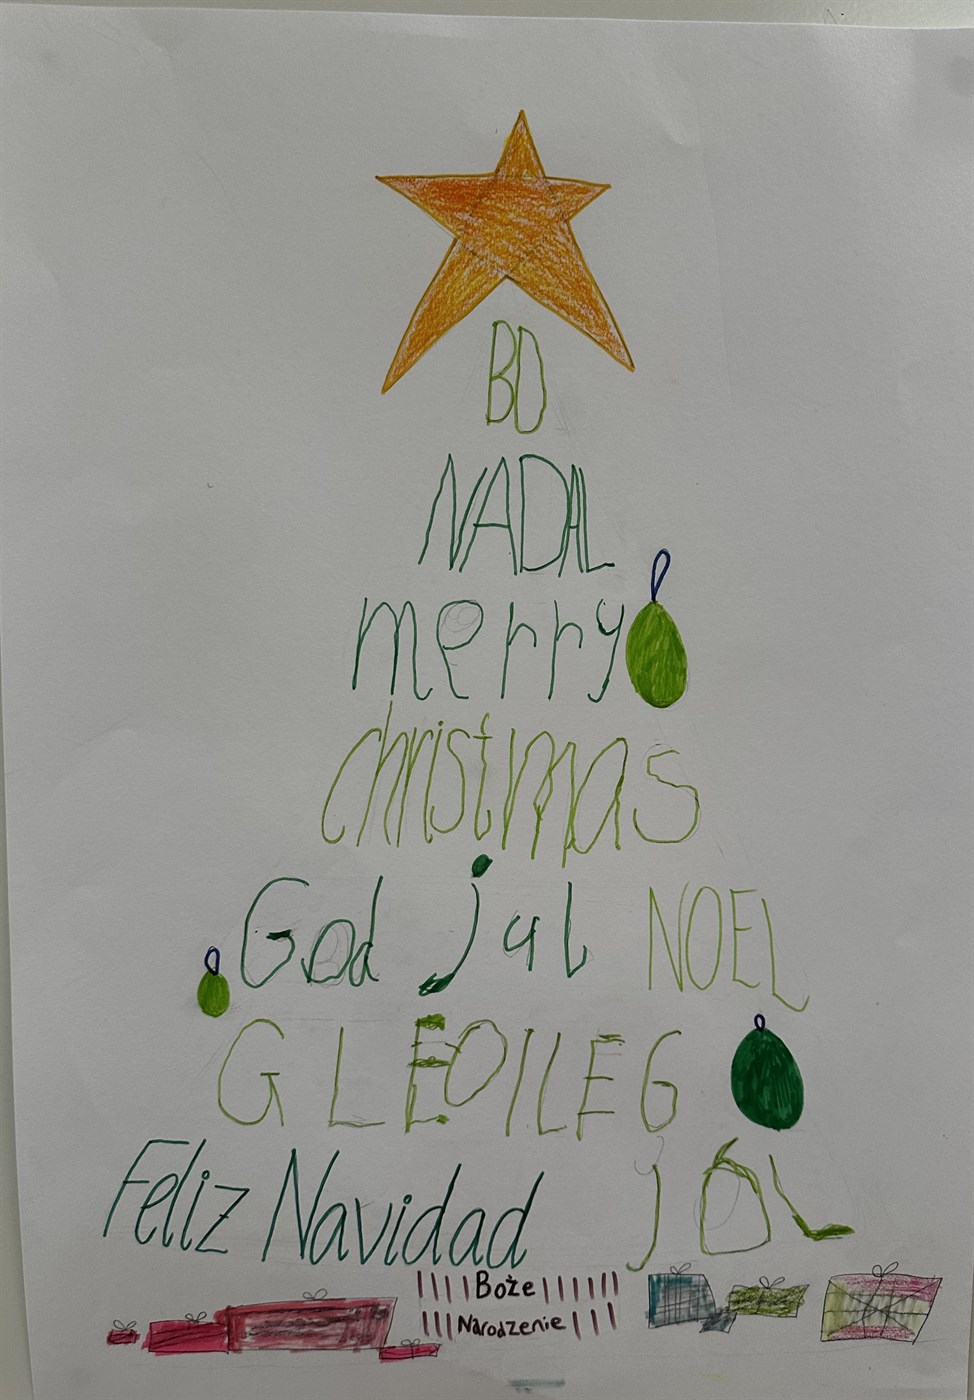 BD
NADAL
merry
christmas
God jul NOEL
GLEOILEG
Feliz Navidad JÓL
Boże
Narodzenie